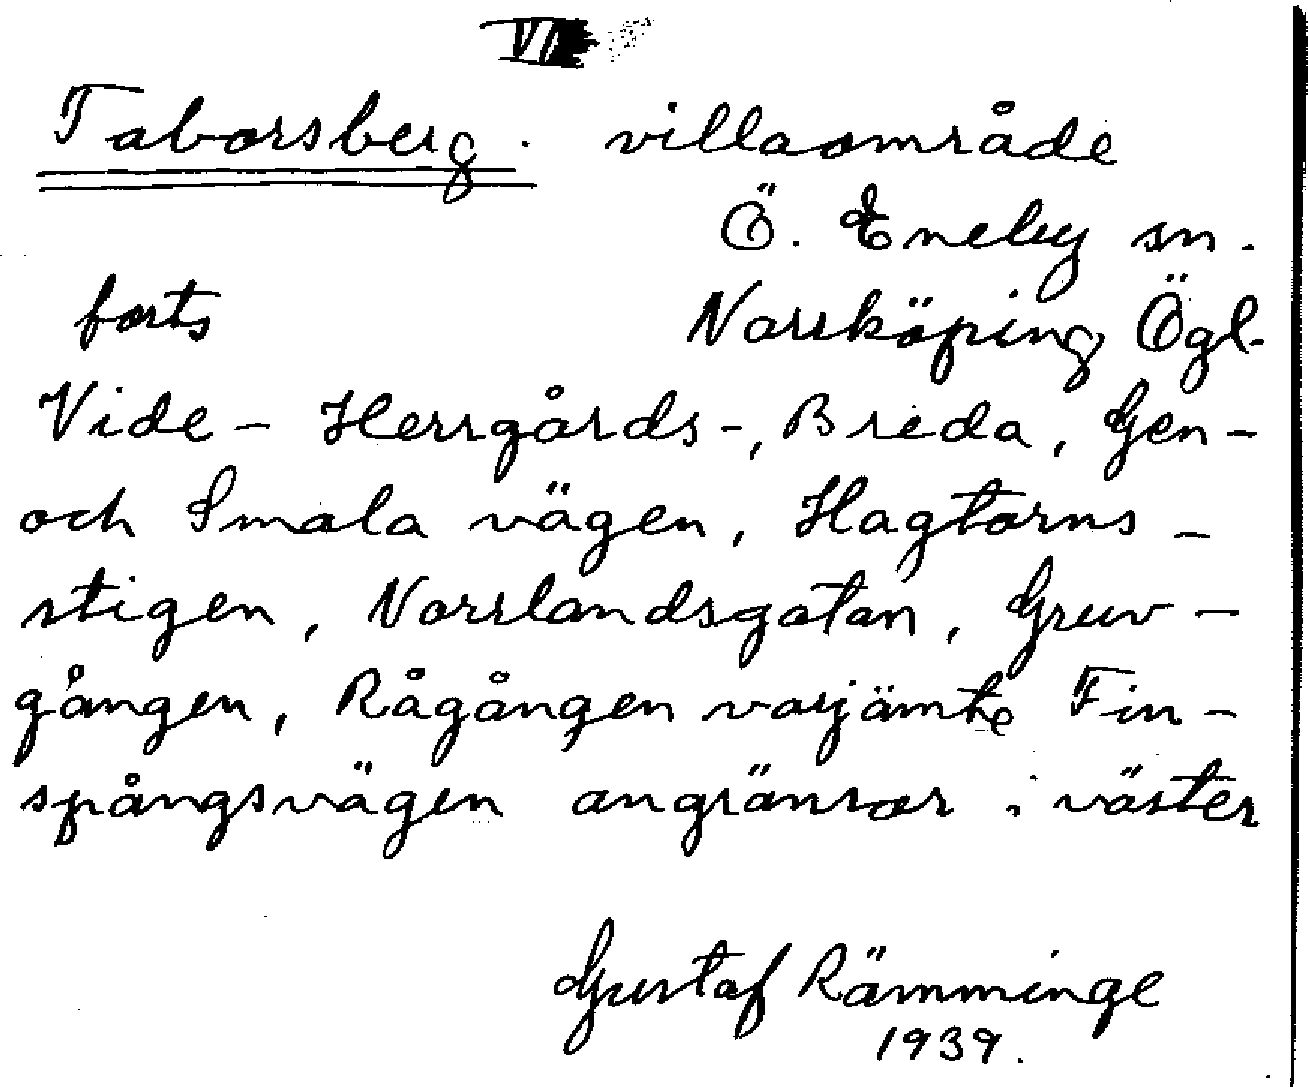 VI
Taborsberg. villaområde
Ö. Eneby sn.
forts Norrköping Ögl.
Vide- Herrgårds-, Breda, Gen-
och Smala vägen, Hagtorns-
stigen, Norrlandsgatan, Gruv-
gången, Rågången varjämte Fin-
spångsvägen angränsar i väster
Gustaf Rämminge
1939.